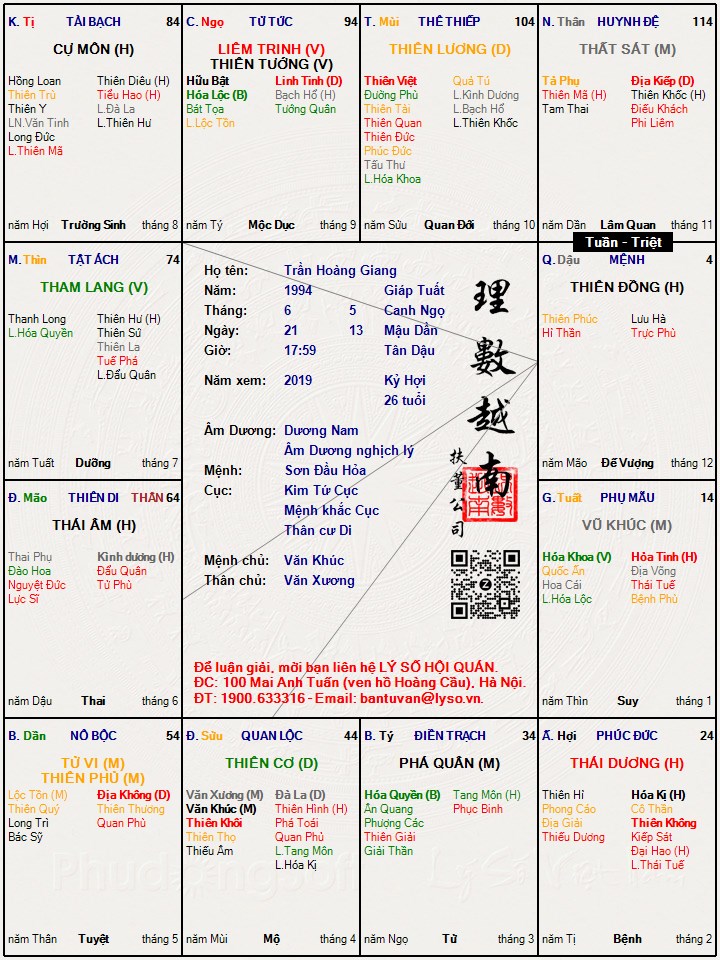 K. Tị TÀI BẠCH 84
CỰ MÔN (H)
Hồng Loan Thiên Diêu (H)
Thiên Trù Tiểu Hao (H)
Thiên Y L.Đà La
LN.Văn Tinh L.Thiên Hư
Long Đức
L.Thiên Mã
năm Hợi Trường Sinh tháng 8
C. Ngọ TỬ TỨC 94
LIÊM TRINH (V)
THIÊN TƯỚNG (V)
Hữu Bật Linh Tinh (D)
Hóa Lộc (B) Bạch Hổ (H)
Bát Tọa Tướng Quân
L.Lộc Tồn
năm Tý Mộc Dục tháng 9
T. Mùi THÊ THIẾP 104
THIÊN LƯƠNG (D)
Thiên Việt Quả Tú
Đường Phù L.Kình Dương
Thiên Tài L.Bạch Hổ
Thiên Quan L.Thiên Khốc
Thiên Đức
Phúc Đức
Tấu Thư
L.Hóa Khoa
năm Sửu Quan Đới tháng 10
N. Thân HUYNH ĐỆ 114
THẤT SÁT (M)
Tả Phụ Địa Kiếp (D)
Thiên Mã (H) Thiên Khốc (H)
Tam Thai Điếu Khách
Phi Liêm
năm Dần Lâm Quan tháng 11
Tuần - Triệt
M. Thìn TẬT ÁCH 74
THAM LANG (V)
Thanh Long Thiên Hư (H)
L.Hóa Quyền Thiên Sứ
Thiên La
Tuế Phá
L.Đẩu Quân
năm Tuất Dưỡng tháng 7
Họ tên: Trần Hoàng Giang
Năm: 1994 Giáp Tuất
Tháng: 6 5 Canh Ngọ
Ngày: 21 13 Mậu Dần
Giờ: 17:59 Tân Dậu
Năm xem: 2019 Kỷ Hợi
26 tuổi
Âm Dương: Dương Nam
Âm Dương nghịch lý
Mệnh: Sơn Đầu Hỏa
Cục: Kim Tứ Cục
Mệnh khắc Cục
Thân cư Di
Mệnh chủ: Văn Khúc
Thân chủ: Văn Xương
理數越南
扶董公司
Để luận giải, mời bạn liên hệ LÝ SỐ HỘI QUÁN.
ĐC: 100 Mai Anh Tuấn (ven hồ Hoàng Cầu), Hà Nội.
ĐT: 1900.633316 - Email: bantuvan@lyso.vn.
Q. Dậu MỆNH 4
THIÊN ĐỒNG (H)
Thiên Phúc Lưu Hà
Hỉ Thần Trực Phù
năm Mão Đế Vượng tháng 12
Đ. Mão THIÊN DI THÂN 64
THÁI ÂM (H)
Thai Phụ Kình dương (H)
Đào Hoa Đẩu Quân
Nguyệt Đức Tử Phù
Lực Sĩ
năm Dậu Thai tháng 6
G. Tuất PHỤ MẪU 14
VŨ KHÚC (M)
Hóa Khoa (V) Hỏa Tinh (H)
Quốc Ấn Địa Võng
Hoa Cái Thái Tuế
L.Hóa Lộc Bệnh Phù
năm Thìn Suy tháng 1
B. Dần NÔ BỘC 54
TỬ VI (M)
THIÊN PHỦ (M)
Lộc Tồn (M) Địa Không (D)
Thiên Quý Thiên Thương
Long Trì Quan Phù
Bác Sỹ
năm Thân Tuyệt tháng 5
Đ. Sửu QUAN LỘC 44
THIÊN CƠ (D)
Văn Xương (M) Đà La (D)
Văn Khúc (M) Thiên Hình (H)
Thiên Khôi Phá Toái
Thiên Thọ Quan Phủ
Thiếu Âm L.Tang Môn
L.Hóa Kị
năm Mùi Mộ tháng 4
B. Tý ĐIỀN TRẠCH 34
PHÁ QUÂN (M)
Hóa Quyền (B) Tang Môn (H)
Ân Quang Phục Binh
Phượng Các
Thiên Giải
Giải Thần
năm Ngọ Tử tháng 3
Ấ. Hợi PHÚC ĐỨC 24
THÁI DƯƠNG (H)
Thiên Hỉ Hóa Kị (H)
Phong Cáo Cô Thần
Địa Giải Thiên Không
Thiếu Dương Kiếp Sát
Đại Hao (H)
L.Thái Tuế
năm Tị Bệnh tháng 2